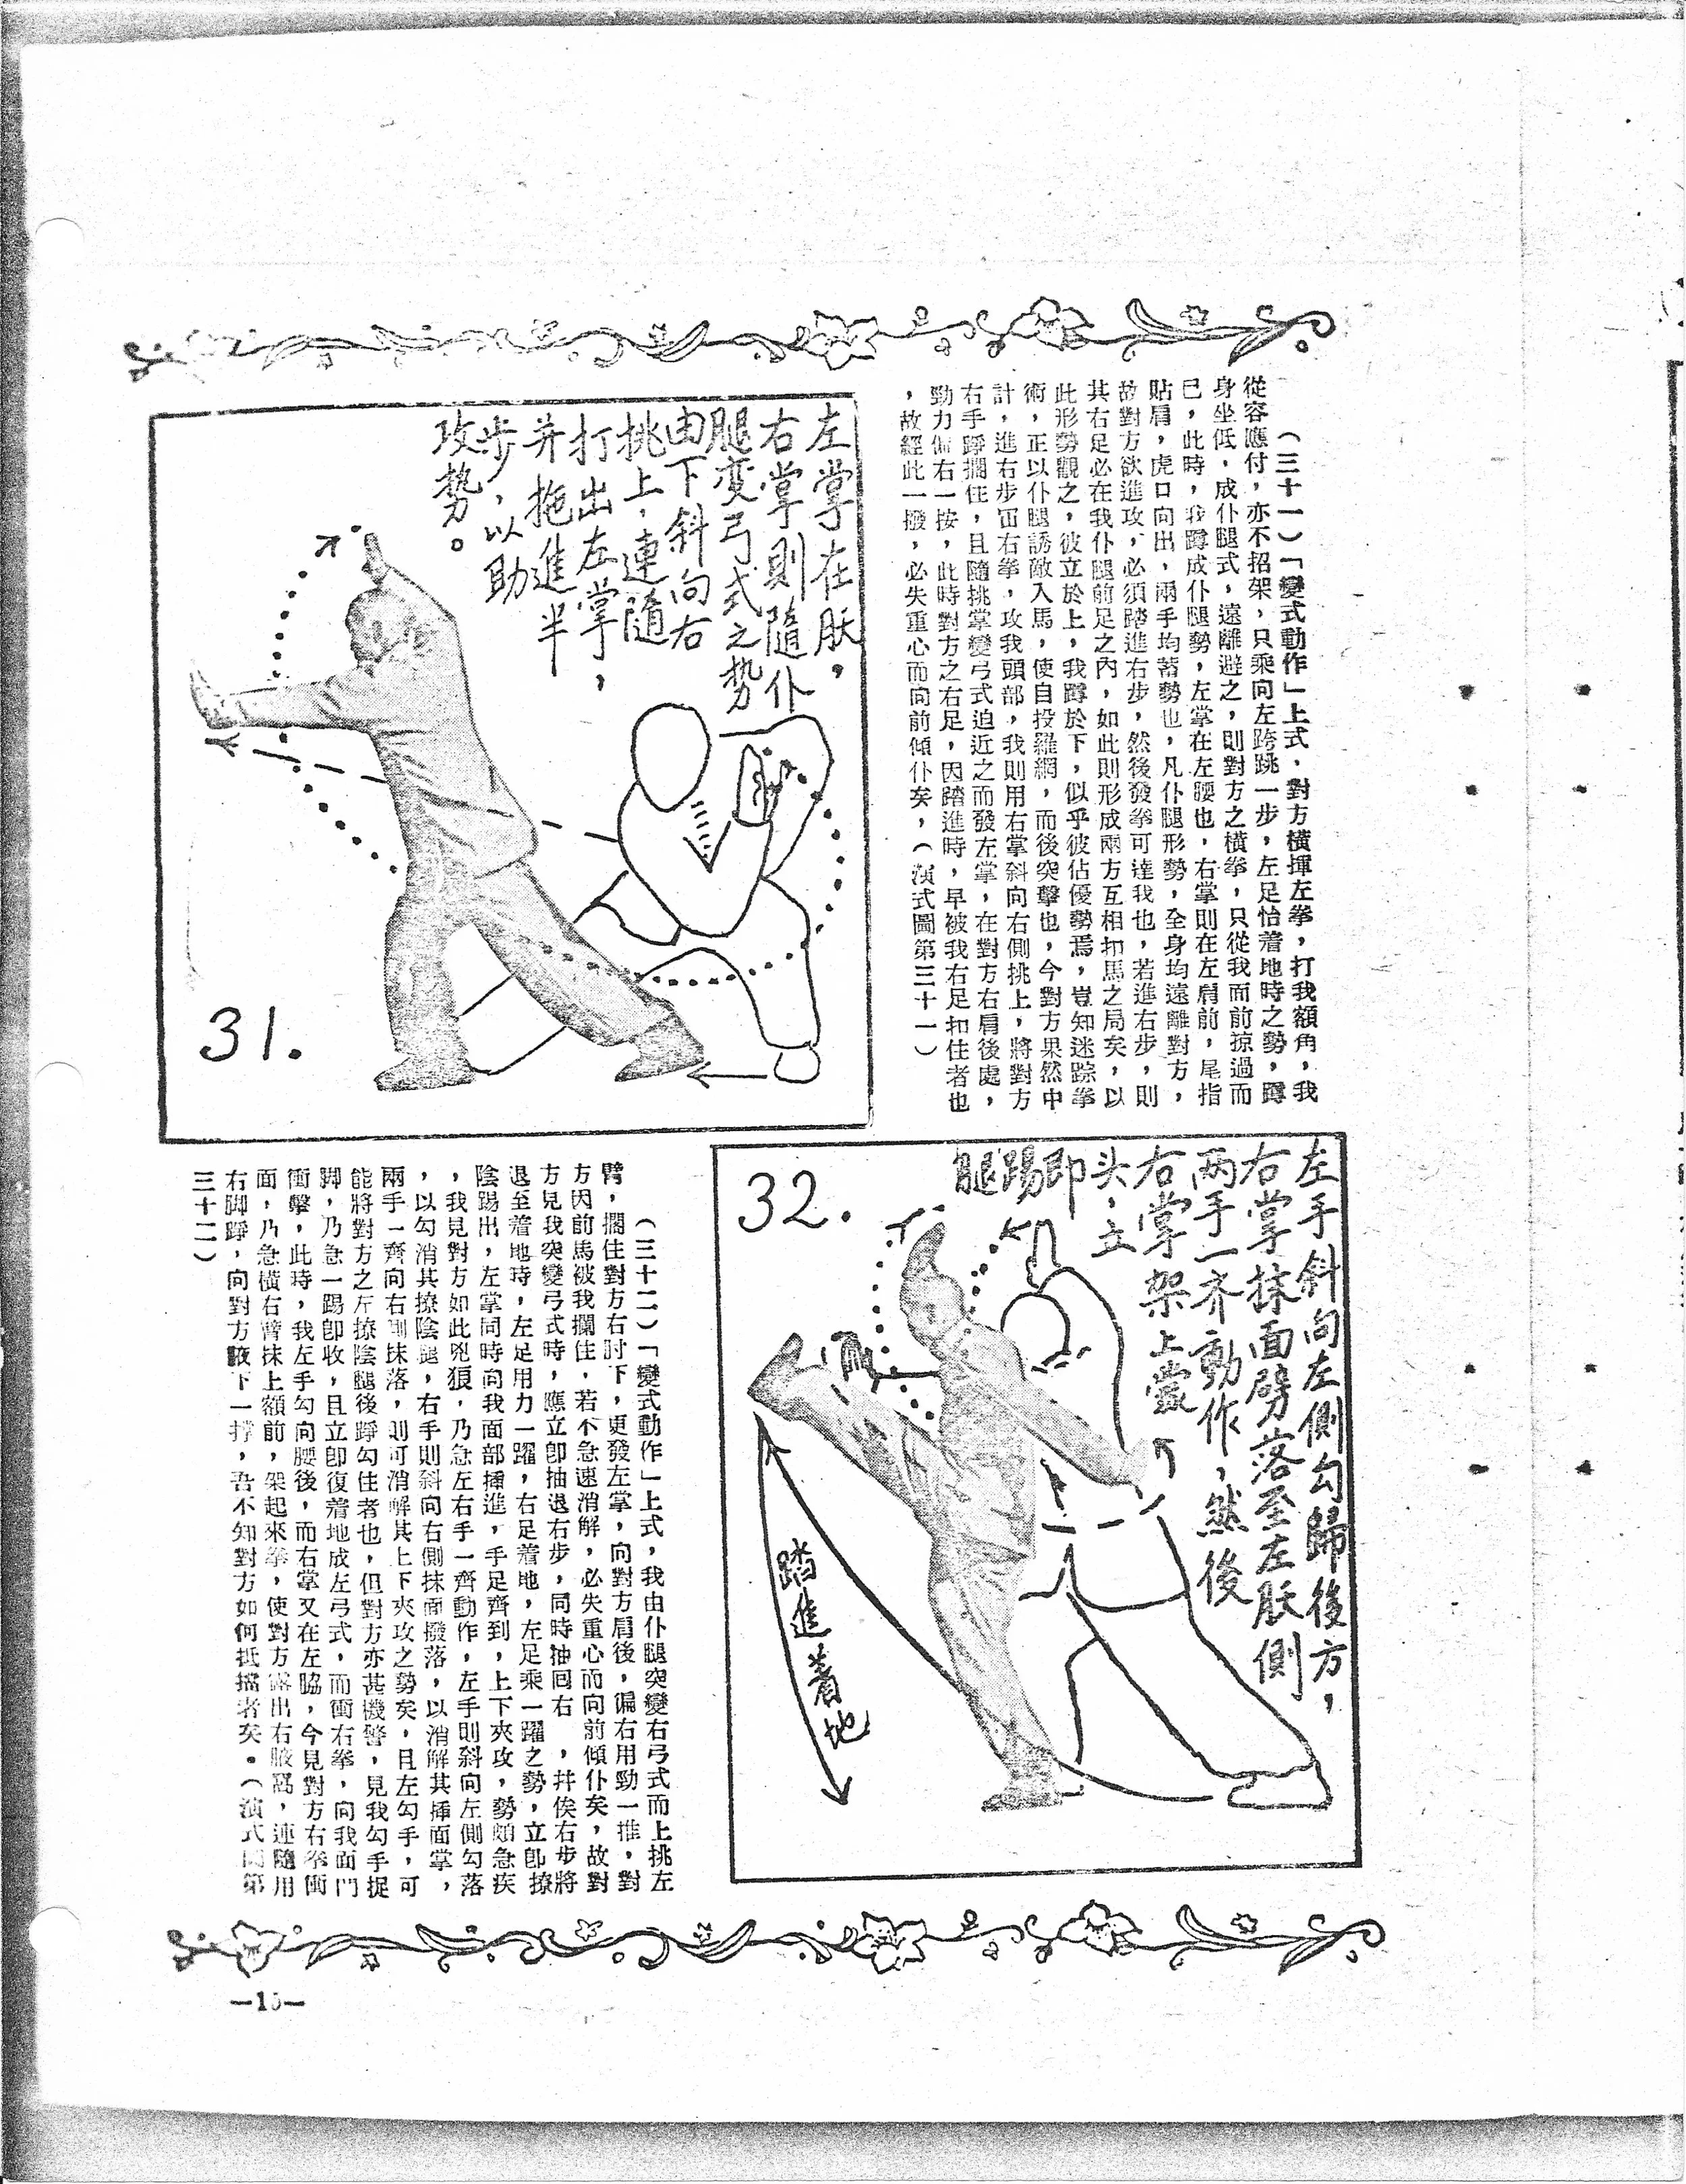 （三十一）「變式動作」上式，對方橫揮左拳，打我額角，我
從容應付，亦不招架，只乘向左跨跳一步，左足恰着地時之勢，蹲
身坐低，成仆腿式，遠離避之，則對方之橫拳，只從我面前掠過而
已，此時，我蹲成仆腿勢，左掌在左腰也，右掌則在左肩前，尾指
貼肩，虎口向出，兩手均蓄勢也，凡仆腿形勢，全身均遠離對方，
故對方欲進攻，必須踏進右步，然後發拳可達我也，若進右步，則
其右足必在我仆腿前足之內，如此則形成兩方互相扣馬之局矣，以
此形勢觀之，彼立於上，我蹲於下，似乎彼佔優勢焉，豈知迷踪拳
術，正以仆腿誘敵入馬，使自投羅網，而後突擊也，今對方果然中
計，進右步衝右拳，攻我頭部，我則用右掌斜向右側挑上，將對方
右手踭擱住，且隨挑掌變弓式迫近之而發左掌，在對方右肩後處，
勁力偏右一按，此時對方之右足，因踏進時，早被我右足扣住者也
，故經此一撥，必失重心而向前傾仆矣，（演式圖第三十一）
左掌在肷，
右掌則隨仆
腿变弓式之势
由下斜向右
挑上，連隨
打出左掌，
并拖進半
步，以助
攻势。
31.
左手斜向左側勾歸後方，
右掌抹面劈落至左肷側
两手一齐動作，然後
右掌架上當
头，立
即
踢
腿
32.
踏進着地
（三十二）「變式動作」上式，我由仆腿突變右弓式而上挑左
臂，擱住對方右肘下，更發左掌，向對方肩後，偏右用勁一推，對
方因前馬被我攔住，若不急速消解，必失重心而向前傾仆矣，故對
方見我突變弓式時，應立卽抽退右步，同時抽囘右，幷俟右步將
退至着地時，左足用力一躍，右足着地，左足乘一躍之勢，立卽撩
陰踢出，左掌同時向我面部插進，手足齊到，上下夾攻，勢頗急疾
，我見對方如此兇狠，乃急左右手一齊動作，左手則斜向左側勾落
，以勾消其撩陰腿，右手則斜向右側抹面撥落，以消解其插面掌，
兩手一齊向右側抹落，則可消解其上下夾攻之勢矣，且左勾手，可
能將對方之左撩陰腿後踭勾住者也，但對方亦甚機警，見我勾手捉
脚，乃急一踢卽收，且立卽復着地成左弓式，而衝右拳，向我面門
衝擊，此時，我左手勾向腰後，而右掌又在左脇，今見對方右拳衝
面，乃急橫右臂抹上額前，架起來拳，使對方露出右腋窩，連隨用
右脚踭，向對方腋下一撑，吾不知對方如何抵擋者矣。（演式圖第
三十二）